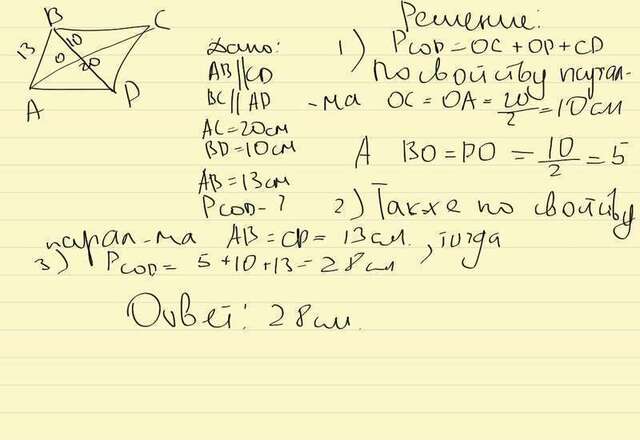 B
C
10
13
O
20
A
D
Дано:
AB||CD
BC||AD
AC=20см
BD=10см
AB=13см
PCOD-?
Решение:
1) PCOD=OC+OD+CD
По свойству парал-
-ма OC=OA=20/2=10см
А BO=DO=10/2=5
2) Также по свойству
парал-ма AB=CD=13см, тогда
3) PCOD=5+10+13=28см
Ответ: 28см.